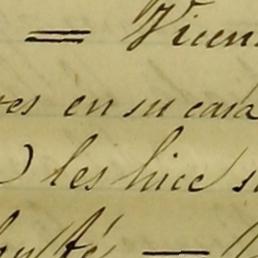 = Vicen
res en su casa
) les hice s
té —